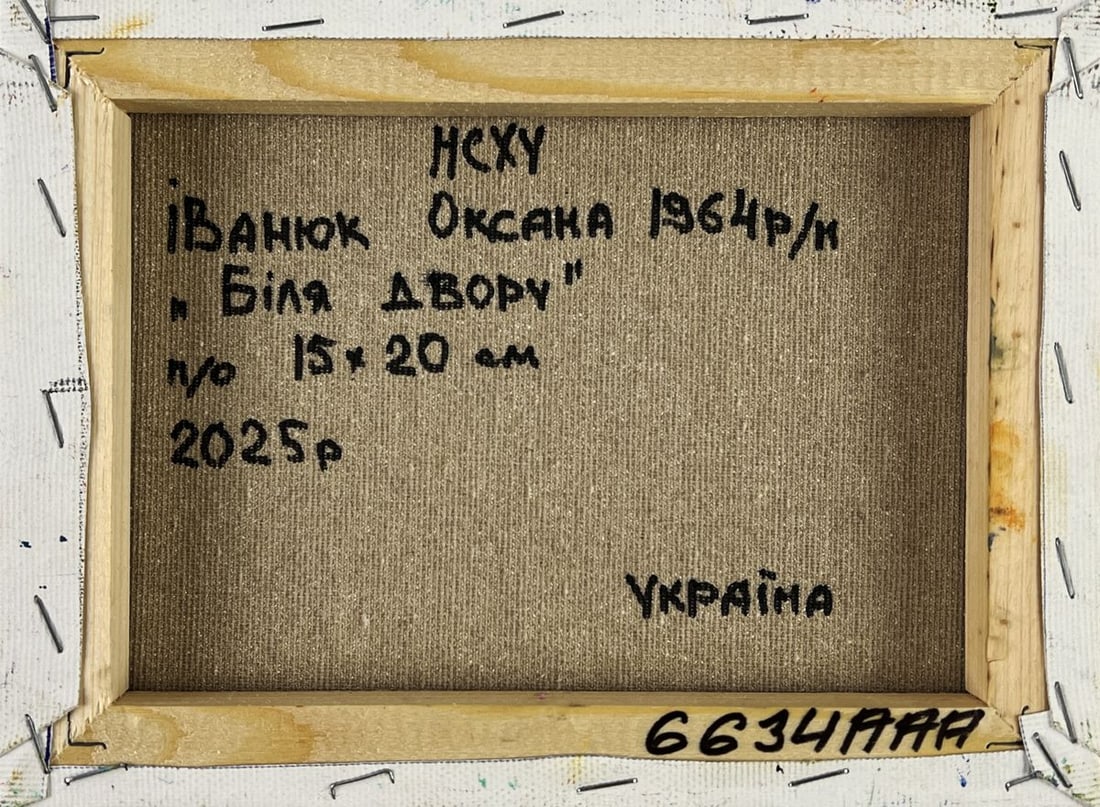 НСХУ
ІВАНЮК ОКСАНА 1964р/н
„Біля двору"
п/о 15×20 см
2025р
УКРАЇНА
6634AAA